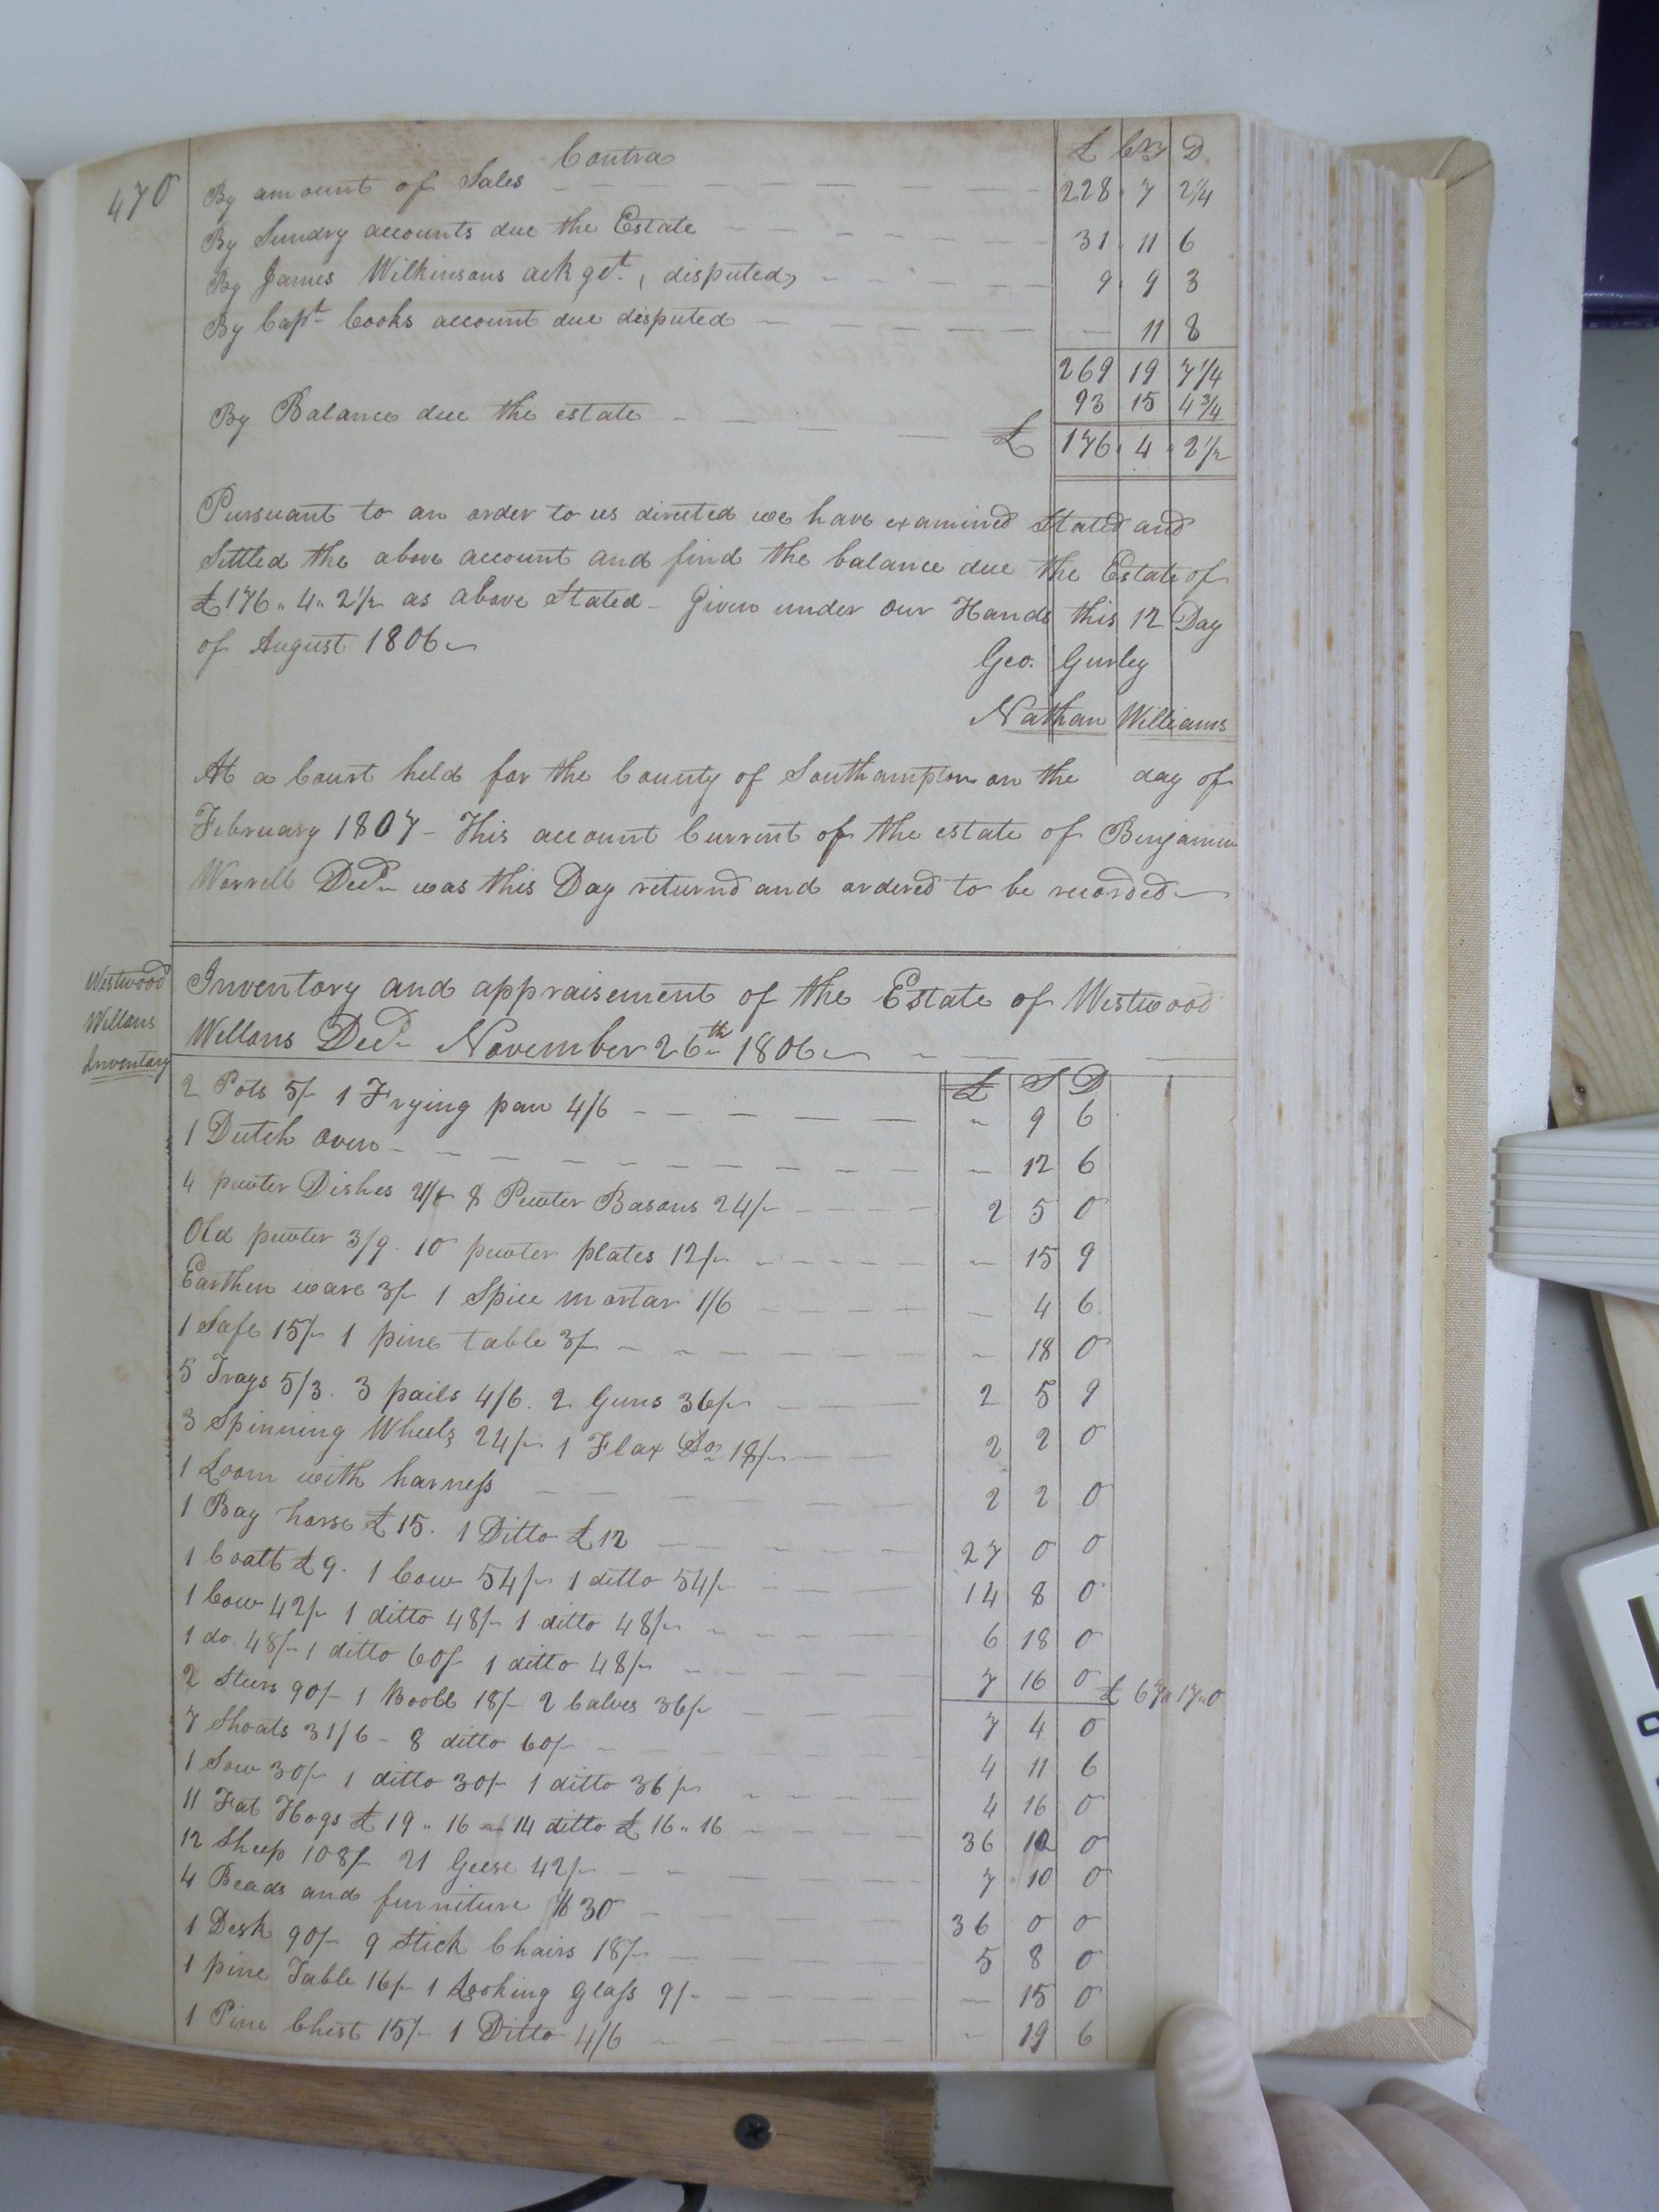 470
Contra £ Crs D
By amount of Sales 228 7 2 1/4
By Sundry accounts due the Estate 31 11 6
By James Wilkinsons ack gt. (disputed) 9 9 3
By Capt Cooks account due disputed — 11 8
269 19 7 1/4
93 15 4 3/4
By Balance due the estate £ 176 4 2 1/2
Pursuant to an order to us directed we have examined Stated and
Settled the above account and find the balance due the Estate of
£176 „ 4 „ 2 1/2 as above Stated – Given under our Hands this 12 Day
of August 1806
Geo. Gurley
Nathan Williams
At a Court held for the County of Southampton on the day of
February 1807 – This account Current of the estate of Benjamin
Worrell Decd was this Day returnd and ordered to be recorded
Westwood
Wellons
Inventory
Inventory and appraisement of the Estate of Westwood
Wellons Decd November 26th 1806
£ S D
2 Pots 5/- 1 Frying pan 4/6 „ 9 6
1 Dutch oven „ 12 6
4 pewter Dishes 21/- 8 Pewter Basons 24/- 2 5 0
Old pewter 3/9. 10 pewter plates 12/- „ 15 9
Earthen ware 3/- 1 Spice mortar 1/6 — 4 6
1 Safe 15/- 1 pine table 3/- „ 18 0
5 Trays 5/3. 3 pails 4/6. 2 Guns 36/- 2 5 9
3 Spinning Wheels 24/- 1 Flax Do 18/- 2 2 0
1 Loom with harness 2 2 0
1 Bay horse £15. 1 Ditto £12 27 0 0
1 Coalt £9. 1 Cow 54/- 1 ditto 54/- 14 8 0
1 Cow 42/- 1 ditto 48/- 1 ditto 48/- 6 18 0
1 do. 48/- 1 ditto 60/- 1 ditto 48/- 7 16 0 £ 67 „ 17 „ 0
2 Steers 90/- 1 Booll 18/- 2 Calves 36/- 7 4 0
7 Shoats 31/6 – 8 ditto 60/- 4 11 6
1 Sow 30/- 1 ditto 30/- 1 ditto 36/- 4 16 0
11 Fat Hogs £19 „ 16 – 14 ditto £16 „ 16 36 12 0
12 Sheep 108/- 21 Geese 42/- 7 10 0
4 Beads and furniture 30 36 0 0
1 Desk 90/- 9 Stick Chairs 18/- 5 8 0
1 pine Table 16/- 1 Looking Glass 9/- „ 15 0
1 Pine Chest 15/- 1 Ditto 4/6 „ 19 6